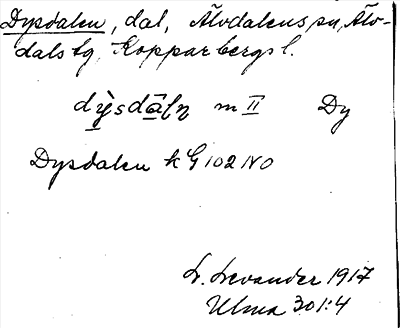 Dysdalen, dal, Älvdalens sn, Älv-
dals tg, Kopparbergs l.
m II Dy
Dysdalen k G 102 NO
L. Levander 1917
Ulma 301:4